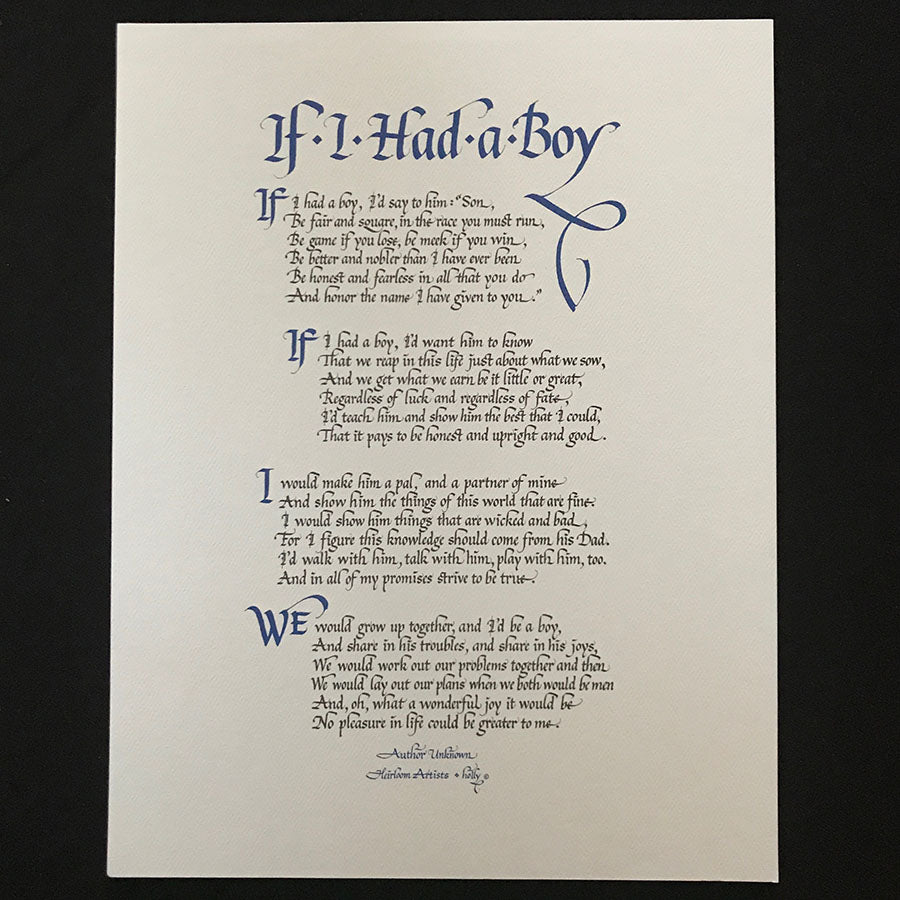 If·I·Had·a·Boy
If I had a boy, I'd say to him: "Son,
Be fair and square, in the race you must run,
Be game if you lose, be meek if you win,
Be better and nobler than I have ever been
Be honest and fearless in all that you do
And honor the name I have given to you."
If I had a boy, I'd want him to know
That we reap in this life just about what we sow,
And we get what we earn be it little or great,
Regardless of luck and regardless of fate,
I'd teach him and show him the best that I could,
That it pays to be honest and upright and good.
I would make him a pal, and a partner of mine
And show him the things of this world that are fine.
I would show him things that are wicked and bad,
For I figure this knowledge should come from his Dad.
I'd walk with him, talk with him, play with him, too.
And in all of my promises strive to be true.
WE would grow up together, and I'd be a boy,
And share in his troubles, and share in his joys,
We would work out our problems together and then
We would lay out our plans when we both would be men
And, oh, what a wonderful joy it would be
No pleasure in life could be greater to me.
Author Unknown
Heirloom Artists • holly ©